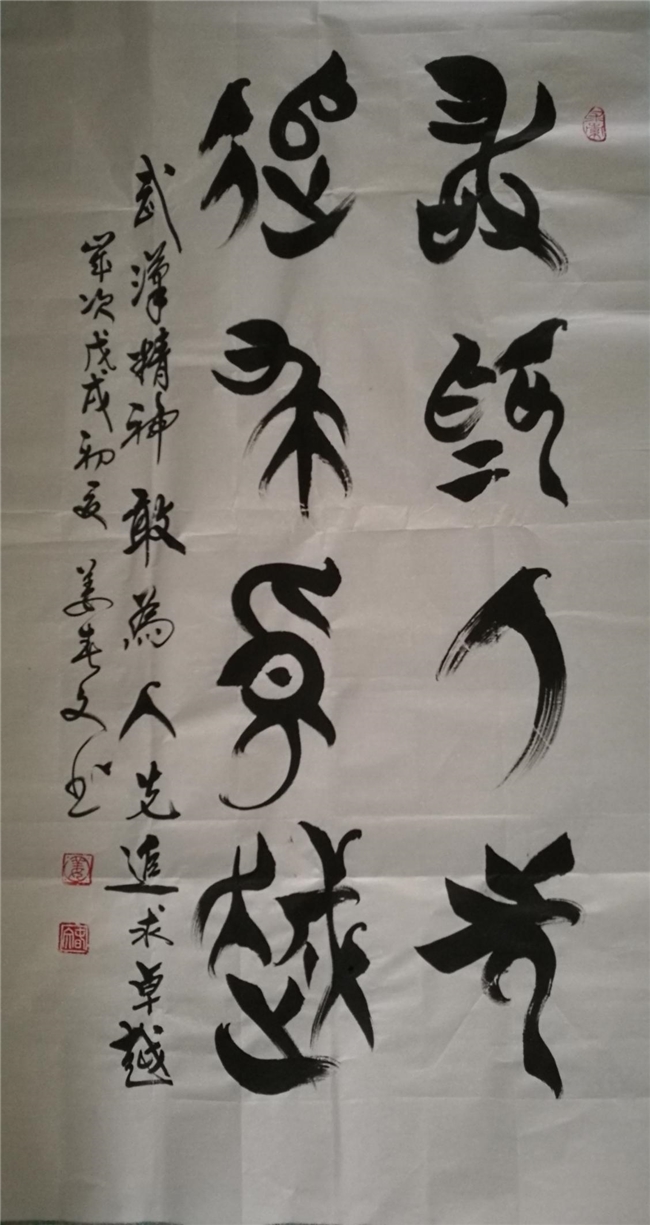 敢為人先
追求卓越
武漢精神敢為人先追求卓越
歲次戊戌初夏姜春文書